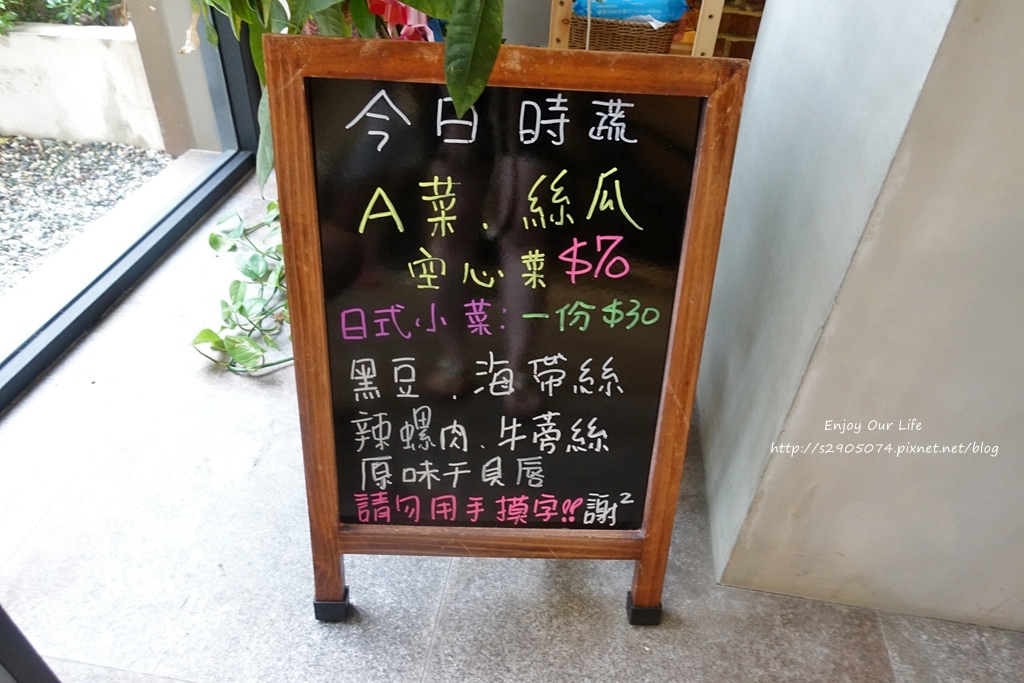 今日時蔬
A菜、絲瓜
空心菜 $70
日式小菜:一份$30
黑豆、海帶絲
辣螺肉、牛蒡絲
原味干貝唇
請勿用手摸字!! 謝²
Enjoy Our Life
http://s2905074.pixnet.net/blog